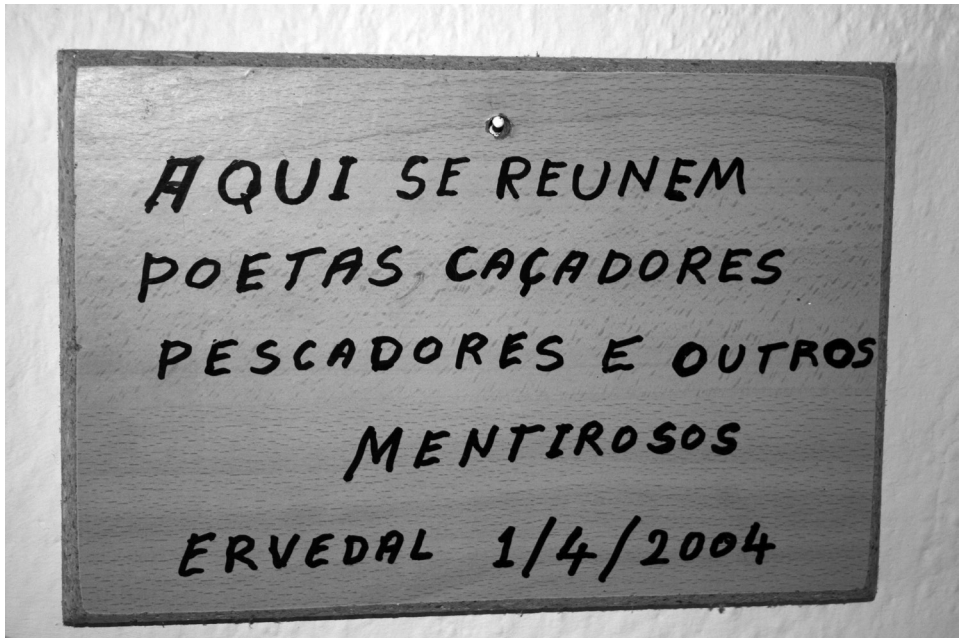 AQUI SE REUNEM
POETAS CAÇADORES
PESCADORES E OUTROS
MENTIROSOS
ERVEDAL 1/4/2004